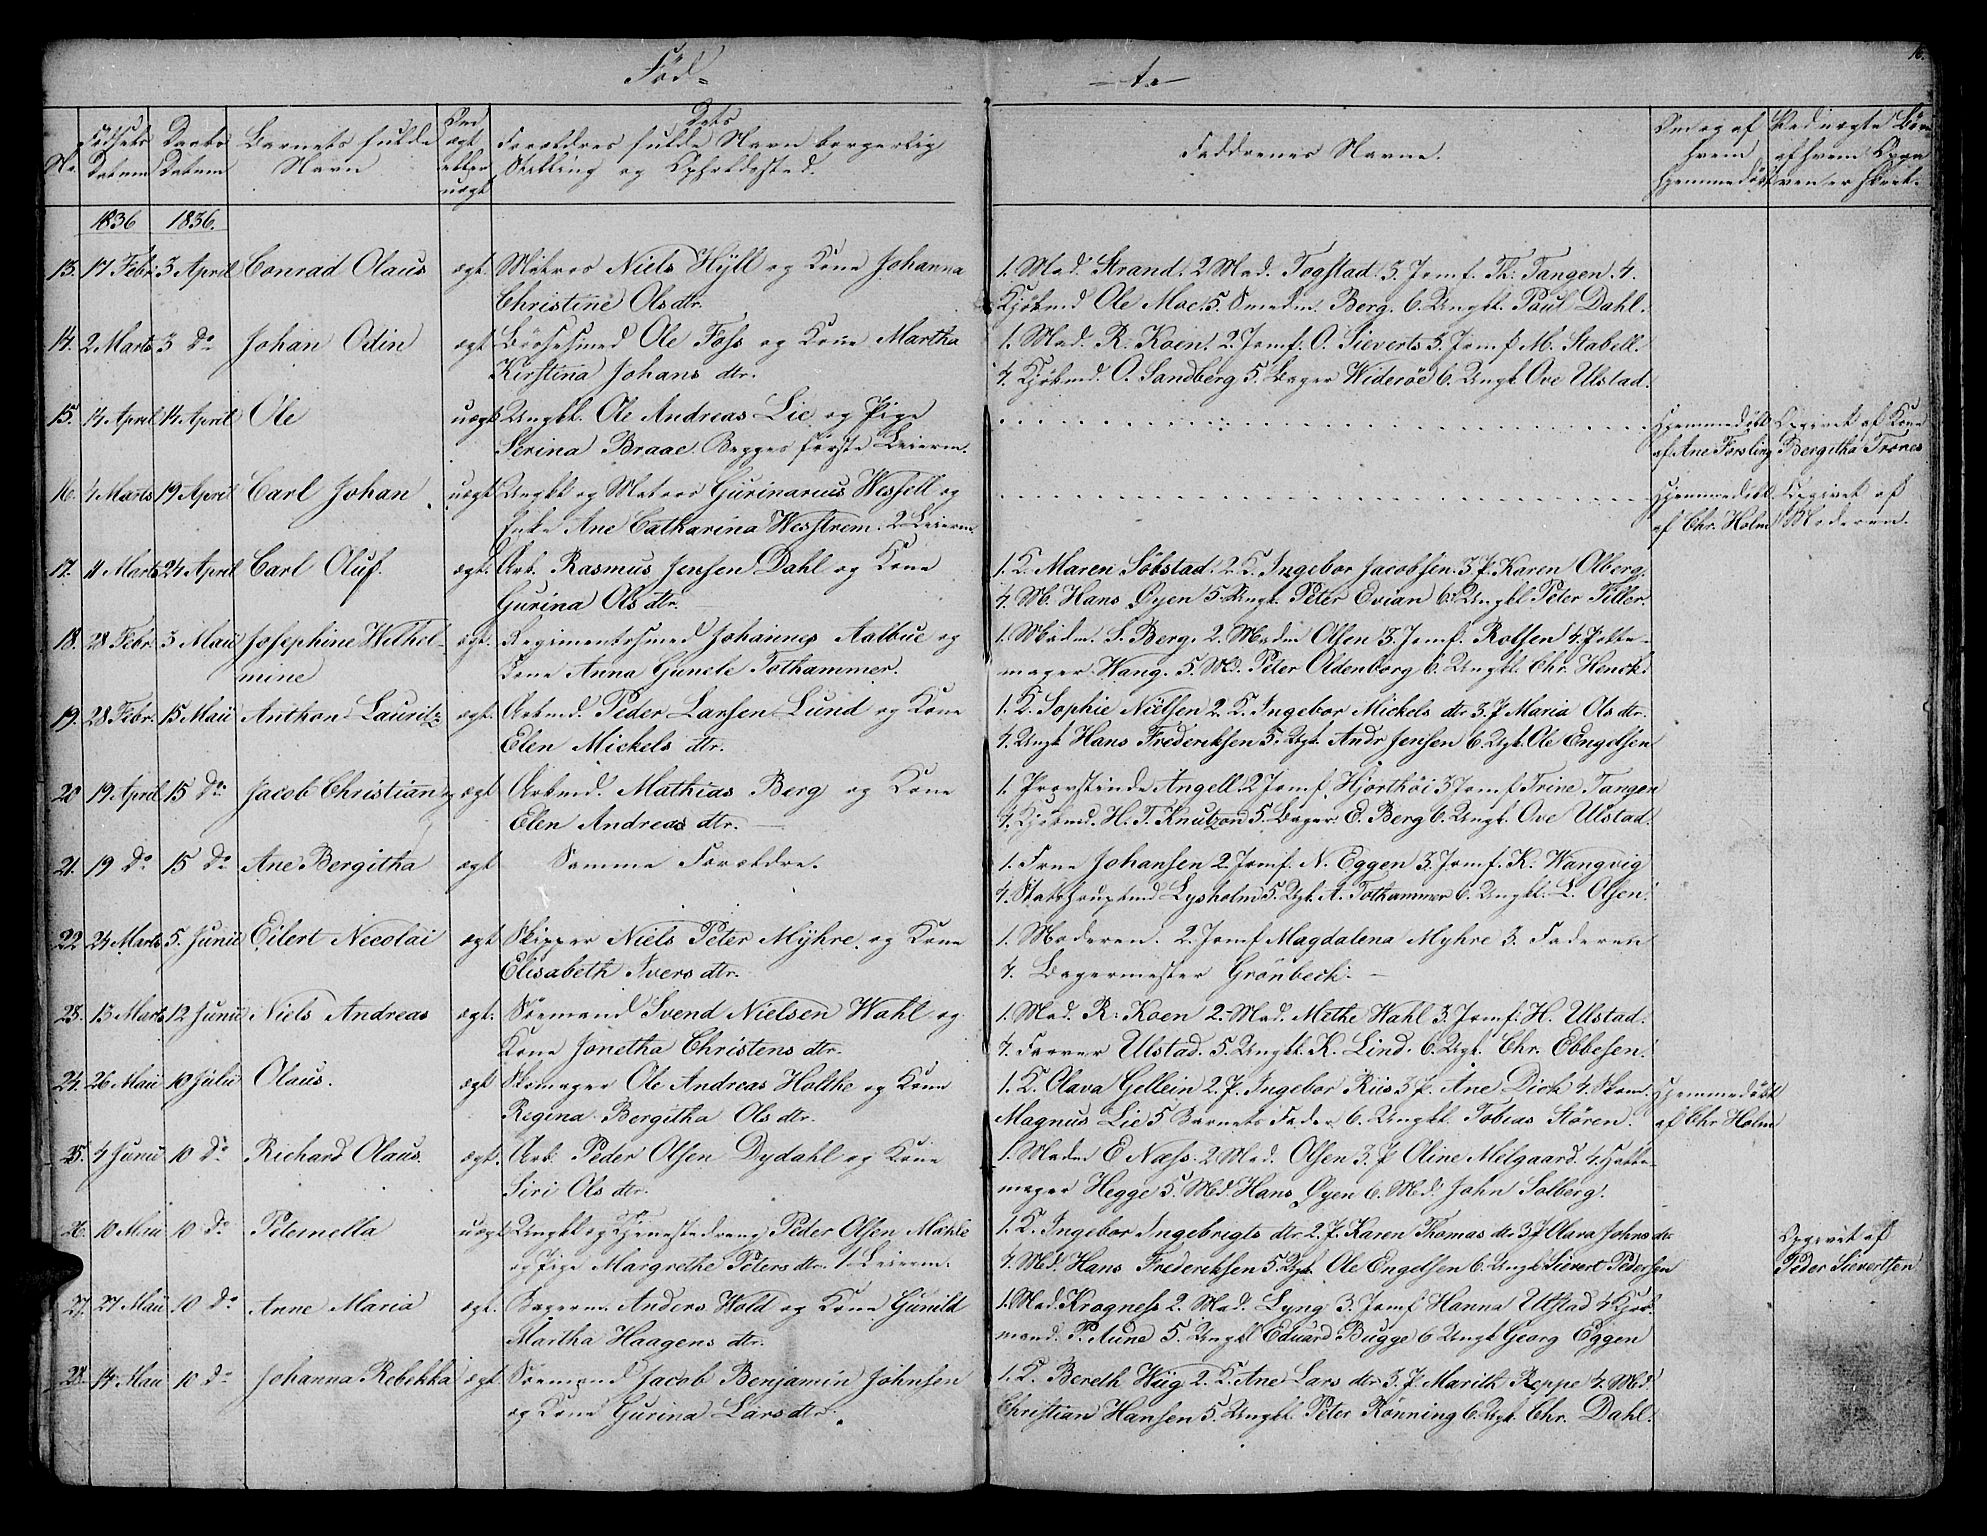 Fød-
-te
16.
No.
Fødsels Datum
Daabs Datum
Barnets fulde Navn
Om ægt eller uægt
Dets Forældres fulde Navn borgerlig Stilling og Opholdssted.
Faddrenes Navne.
Om og af hvem hjemmedøbt
1836 1836.
13. 17 Febr. 3 April Conrad Olaus ægt. Matros Niels Hÿll og Kone Johanna
Christine Olsdtr.
1. Mad. Strand. 2 Mad. Togstad. 3. Jomf. Th: Tangen. 4.
Kjøbmd Ole Moe. 5. Smedm. Berg. 6. Ungk. Paul Dahl.
14. 2 Marts 3 do Johan Odin ægt Bøssesmed Ole Foss og Kone Martha
Kirstina Johans dtr.
1. Mad. R. Koen. 2. Jomf. O. Sieverts 3. Jomf M. Stabell.
4. Kjøbmd. O. Sandberg 5. Bager Widerøe 6. Ungk. Ove Ulstad.
15. 14 April 14 April Ole uægt Ungkl. Ole Andreas Lie og Pige
Serina Braae. Begges første Leierm.
Hjemmedøbt
af Ane Forsling
Opgivet af Kone
Bergitha Trones
16. 4 Marts 19 April Carl Johan uægt Ungkl og Matros Gurinarius Wessell og
Enke Ane Catharina Wesstrem. 2 Leierm.
Hjemmedøbt
af Chr. Holm
Opgivet af
Moderen.
17. 11 Marts 24 April Carl Oluf. ægt. Arb. Rasmus Jensen Dahl og Kone
Gurina Ols dtr.
1. K. Maren Søbstad. 2. K. Ingebor Jacobsen. 3 P. Karen Olberg.
4. M. Hans Øyen 5. Ungk. Peter Evian 6. Ungkl Peter Tiller.
18. 28 Febr. 3 Maii Josephine Wilhel-
mine
ægt. Regimentssmed Johannes Aalbue og
Kone Anna Gunele Tothammer.
1. Madm. S. Berg. 2. Madm Olsen 3. Jomf. Rolfsen 4.
mager Wang. 5. Md. Peter Oldenborg 6. Ungkl. Chr. Henck.
19. 28 Febr. 15 Maii Anthon Lauritz ægt. Arbmd. Peder Larsen Lund og Kone
Elen Mickels dtr.
1. K. Sophie Nielsen 2. K. Ingebor Mickels dtr 3. P Maria Ols dtr.
4. Ungk Hans Frederiksen 5. Ugk. Andr Jensen 6. Ugk. Ole Engelsen
20 19 April 15 do Jacob Christian ægt Arbmd. Mathias Berg og Kone
Elen Andreas dtr.
1. Provstinde Angell. 2 Jomf. Hjorthöi 3 Jomf Trine Tangen
4. Kjøbmd. H. T. Knutzon 5. Bager E. Berg 6. Ungk. Ove Ulstad.
21. 19 do 15 do Ane Bergitha ægt Samme Forældre.
1. Frue Johansen 2. Jomf. N. Eggen 3. Jomf. K. Wangvig
4. Stadshauptmd Lysholm 5. Ugk. A. Tothammer 6. Ungkl. L. Olsen.
22 24 Marts 5 Junii Eilert Nicolai ægt Skipper Niels Peter Mÿhre og Kone
Elisabeth Ivers dtr.
1. Moderen. 2. Jomf Magdalena Myhre 3. Faderen
4. Bagermester Grönbeck.
23. 13 Marts 12 Junii Niels Andreas ægt. Sømand Svend Nielsen Wahl og
Kone Jonetha Christens dtr.
1. Mad. R. Koen 2. Mad. Methe Wahl 3. Jomf. H. Ulstad.
4. Farver Ulstad. 5. Ungkl. K. Lind. 6. Ugk. Chr. Ebbesen.
24. 26 Maii 10 Julii Olaus. ægt Skomager Ole Andreas Holthe og Kone
Regina Bergitha Ols dtr.
1. K. Olava Gellein 2. P. Ingebor Riis 3 P. Ane Dick 4. Skom.
Magnus Lie 5 Barnets Fader 6. Ungkl. Tobias Stören.
Hjemmedøbt
af Chr Holm
25. 4 Junii 10 do Richard Olaus. ægt. Arb. Peder Olsen Dydahl og Kone
Siri Ols dtr.
1. Madm E. Næss. 2 Mad. Olsen 3. P Oline Melgaard. 4. Hatte-
mager Hegge 5. Md. Hans Øyen 6. Md. John Solberg.
26. 10 Maii 10 do Peternella uægt Ungkl og Tjenestedreng Peder Olsen Mæhle
og Pige Margrethe Peters dtr. 1 Leierm.
1. K. Ingebor Ingebrigts dtr 2. P. Karen Thomas dtr 3 P Olava Johns dtr
4. Md. Hans Frederiksen 5. Ugk. Ole Engelsen 6. Ungk Sievert Pedersen
Opgivet af
Peder Sievertsen
27. 27 Maii 10 do Anne Maria ægt. Bagerm. Anders Wold og Kone Gunild
Martha Haagens dtr.
1. Mad. Kragness 2. Mad. Lyng 3. Jomf Hanna Ulstad 4 Kjøb-
mand P. Aune 5. Ungkl Eduard Bugge 6 Ungk Georg Eggen
28. 14 Maii 10 do Johanna Rebekka ægt Sømand Jacob Benjamin Johnsen
og Kone Gurina Larsdtr.
1. K. Bereth Wiig 2. K. Ane Lars dtr 3. P. Marith Reppe 4. Md.
Christian Hansen 5. Ungkl. Peter Rönning 6. Ugk. Chr. Dahl.